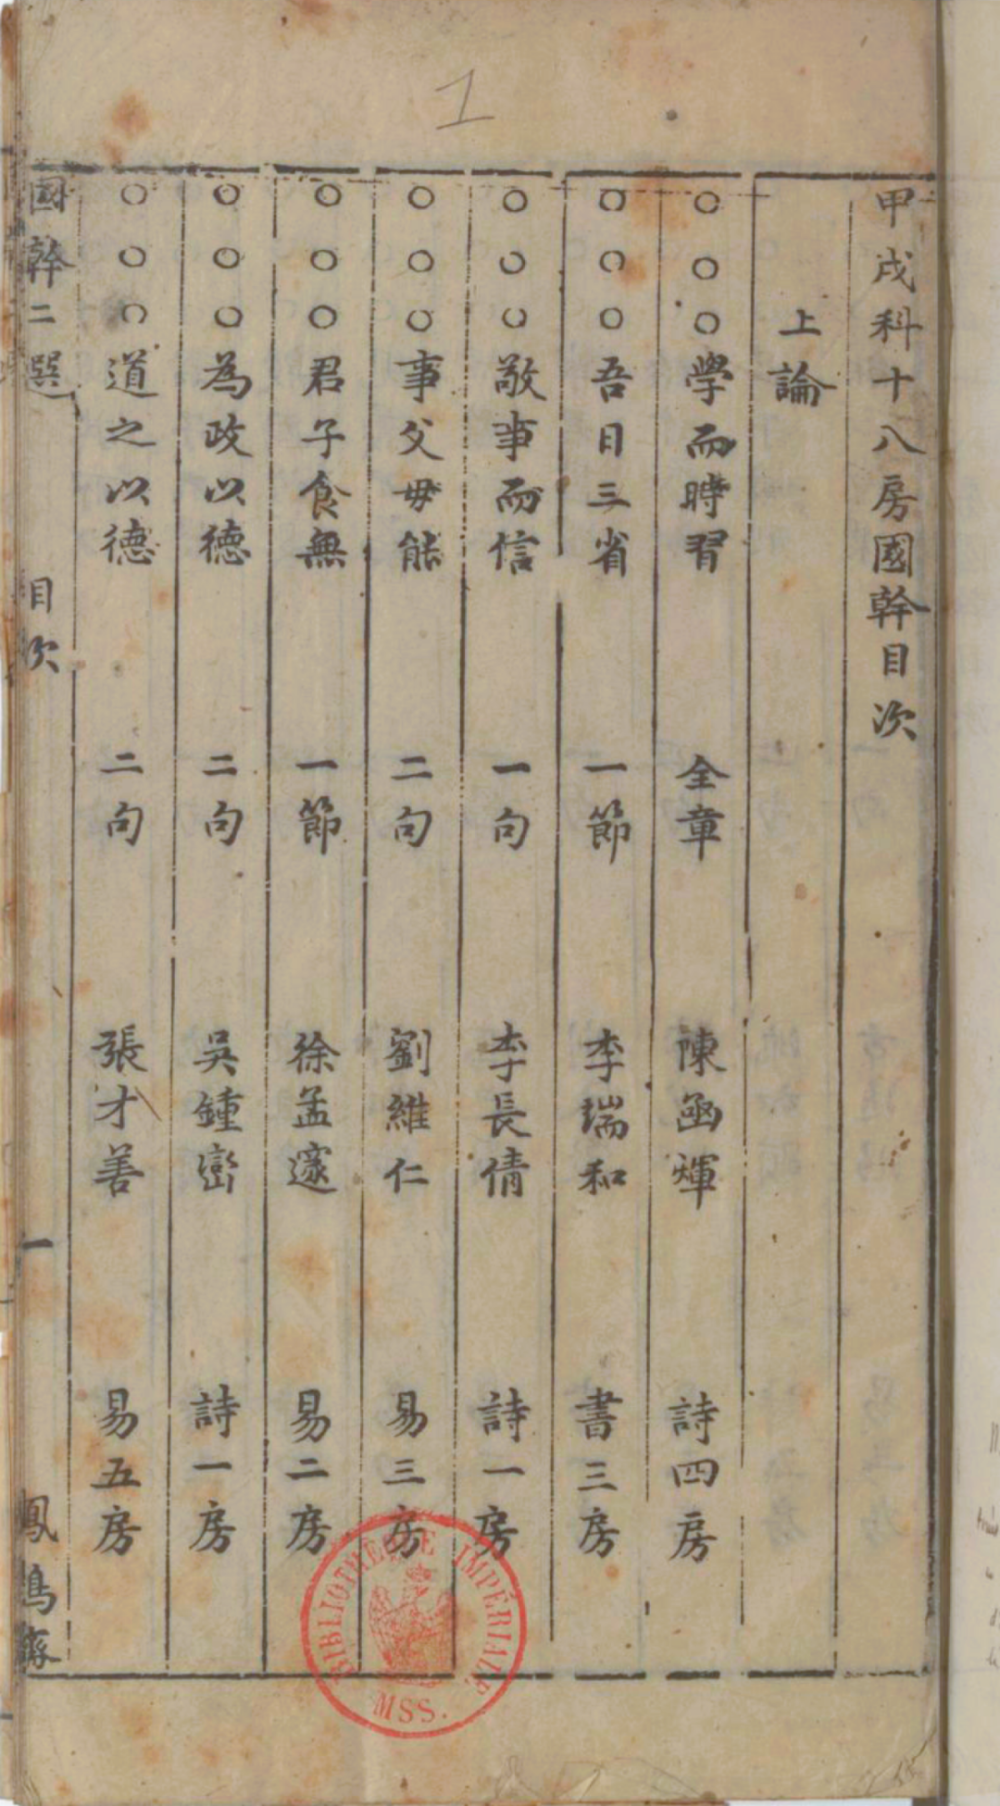 1
甲戌科十八房國幹目次
上論
○○○學而時習 全章 陳函煇 詩四房
○○○吾日三省 一節 李瑞和 書三房
○○○敬事而信 一句 李長倩 詩一房
○○○事父毋能 二句 劉維仁 易三房
○○○君子食無 一節 徐孟邃 易二房
○○○為政以德 二句 吳鍾巒 詩一房
○○○道之以德 二句 張才善 易五房
國幹二選 目次 一 鳳鳴齋
BIBLIOTHÈQUE IMPÉRIALE
MSS.